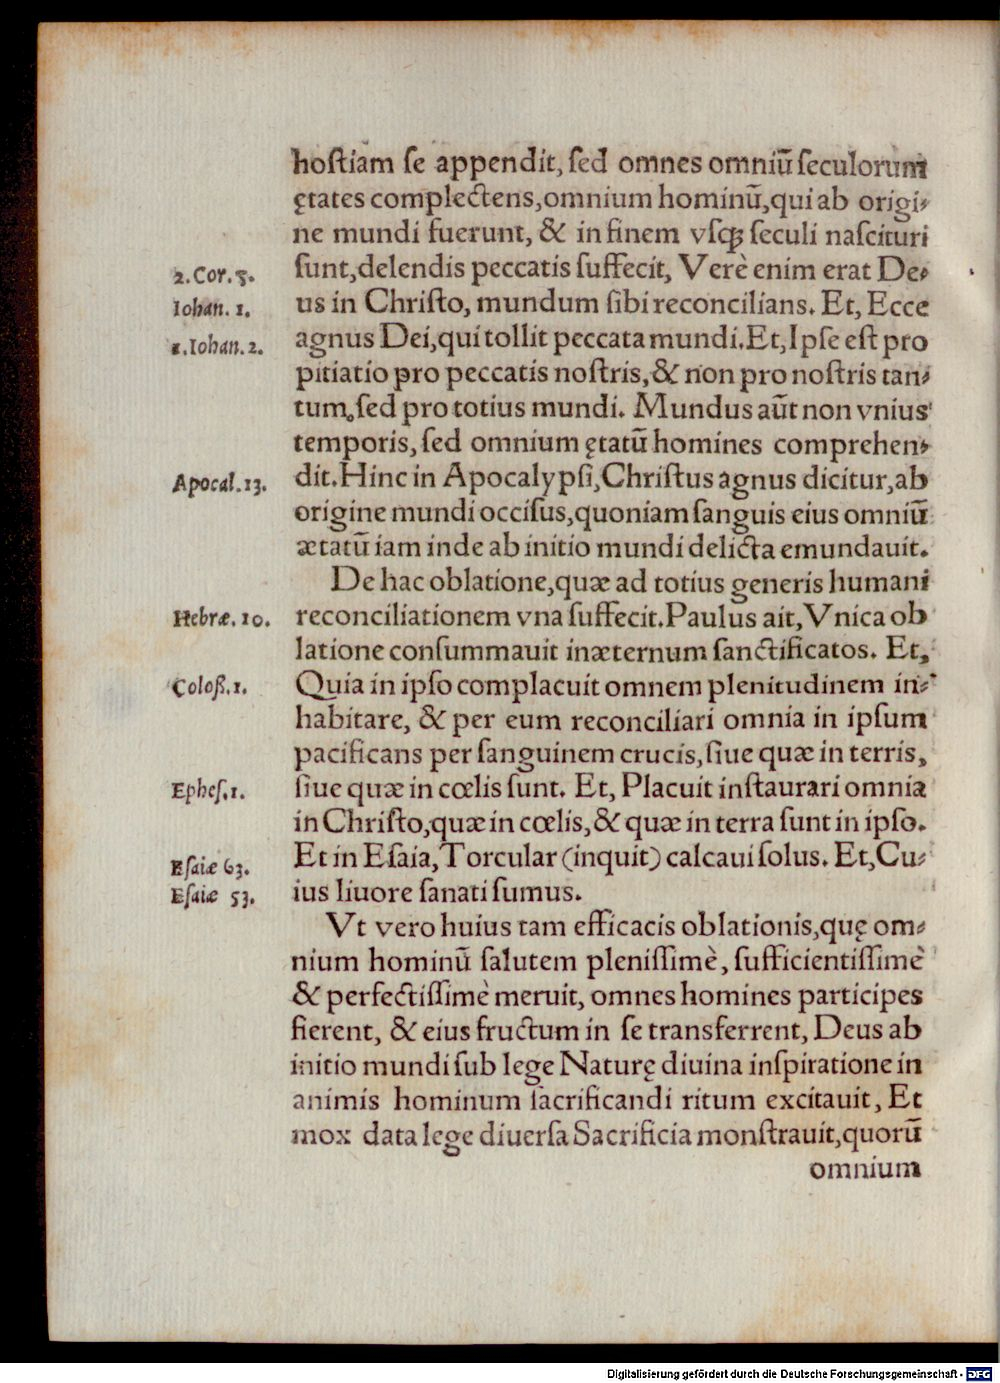 hoſtiam ſe appendit, ſed omnes omniũ ſeculorum
ętates complectens, omnium hominũ, qui ab origi⸗
ne mundi fuerunt, & in finem vſqꝫ ſeculi naſcituri
2. Cor. 5. ſunt, delendis peccatis ſuffecit, Verè enim erat De⸗
Iohan. 1. us in Chriſto, mundum ſibi reconcilians. Et, Ecce
1. Iohan. 2. agnus Dei, qui tollit peccata mundi. Et, Ipſe eſt pro
pitiatio pro peccatis noſtris, & non pro noſtris tan⸗
tum, ſed pro totius mundi. Mundus aũt non vnius
temporis, ſed omnium ętatũ homines comprehen⸗
Apocal. 13. dit. Hinc in Apocalypſi, Chriſtus agnus dicitur, ab
origine mundi occiſus, quoniam ſanguis eius omniũ
ætatũ iam inde ab initio mundi delicta emundauit.
De hac oblatione, quæ ad totius generis humani
Hebræ. 10. reconciliationem vna ſuffecit. Paulus ait, Vnica ob
latione conſummauit inæternum ſanctificatos. Et,
Coloß. 1. Quia in ipſo complacuit omnem plenitudinem in⸗
habitare, & per eum reconciliari omnia in ipſum
pacificans per ſanguinem crucis, ſiue quæ in terris,
Epheſ. 1. ſiue quæ in cœlis ſunt. Et, Placuit inſtaurari omnia
in Chriſto, quæ in cœlis, & quæ in terra ſunt in ipſo.
Eſaiæ 63. Et in Eſaia, Torcular (inquit) calcaui ſolus. Et, Cu⸗
Eſaiæ 53. ius liuore ſanati ſumus.
Vt vero huius tam efficacis oblationis, quę om⸗
nium hominũ ſalutem pleniſſimè, ſufficientiſſimè
& perfectiſſimè meruit, omnes homines participes
fierent, & eius fructum in ſe transferrent, Deus ab
initio mundi ſub lege Naturę diuina inſpiratione in
animis hominum ſacrificandi ritum excitauit, Et
mox data lege diuerſa Sacrificia monſtrauit, quorũ
omnium
Digitalisierung gefördert durch die Deutsche Forschungsgemeinschaft - DFG